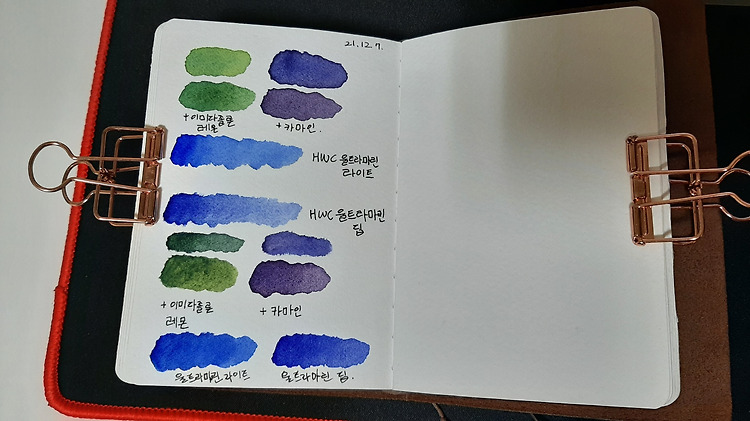 21.12.7.
+이미다졸론
레몬
+카마인.
HWC 울트라마린
라이트
HWC 울트라마린
딥
+이미다졸론
레몬
+카마인
울트라마린 라이트
울트라마린 딥.